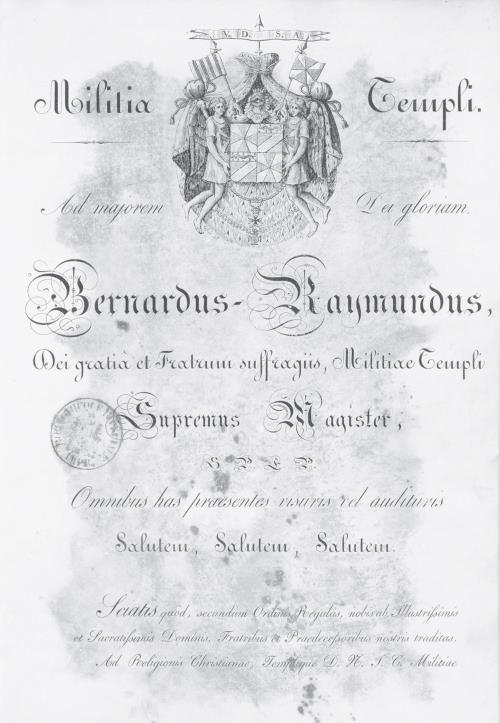 V. D. S. A.
Militia Templi.
Ad majorem Dei gloriam.
Bernardus-Raymundus,
Dei gratiâ et Fratrum suffragiis, Militiae Templi
Supremus Magister,
Omnibus has praesentes visuris vel audituris
Salutem, Salutem, Salutem.
Sciatis quod, secundum Ordinis Regulas, nobis ab Illustrissimis
et Sacratissimis Dominis, Fratribus et Praedecessoribus nostris traditas,
Ad Religionis Christianae, Templique D. N. J. C. Militiae